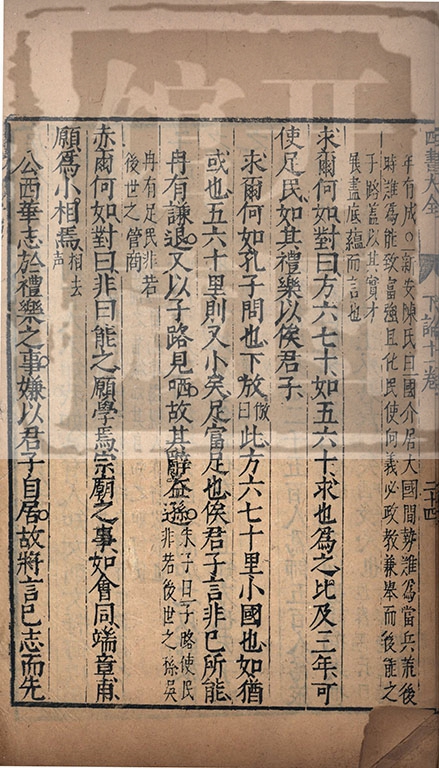 四書大全 下論十一卷 二十四
年有成○新安陳氏曰國介居大國間勢難為當兵荒後
時誰為能致富強且化民使向義必政教兼舉而後能之
子路蓋以其實才
展盡底蘊而言也
求爾何如對曰方六七十如五六十求也為之比及三年可
使足民如其禮樂以俟君子
求爾何如孔子問也下放倣曰此方六七十里小國也如猶
或也五六十里則又小矣足富足也俟君子言非已所能
冉有謙退又以子路見哂故其辭益孫朱子曰子路使民非若後世之孫吳
冉有足民非若
後世之管商
赤爾何如對曰非曰能之願學焉宗廟之事如會同端章甫
願為小相焉相去聲
公西華志於禮樂之事嫌以君子自居故將言已志而先